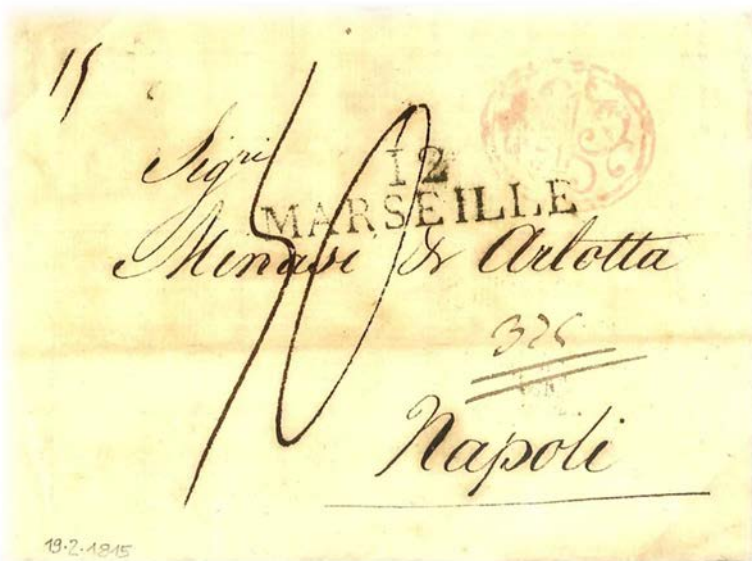 15
Sigri
12
MARSEILLE
Minasi & Arlotta
Napoli
19.2.1815